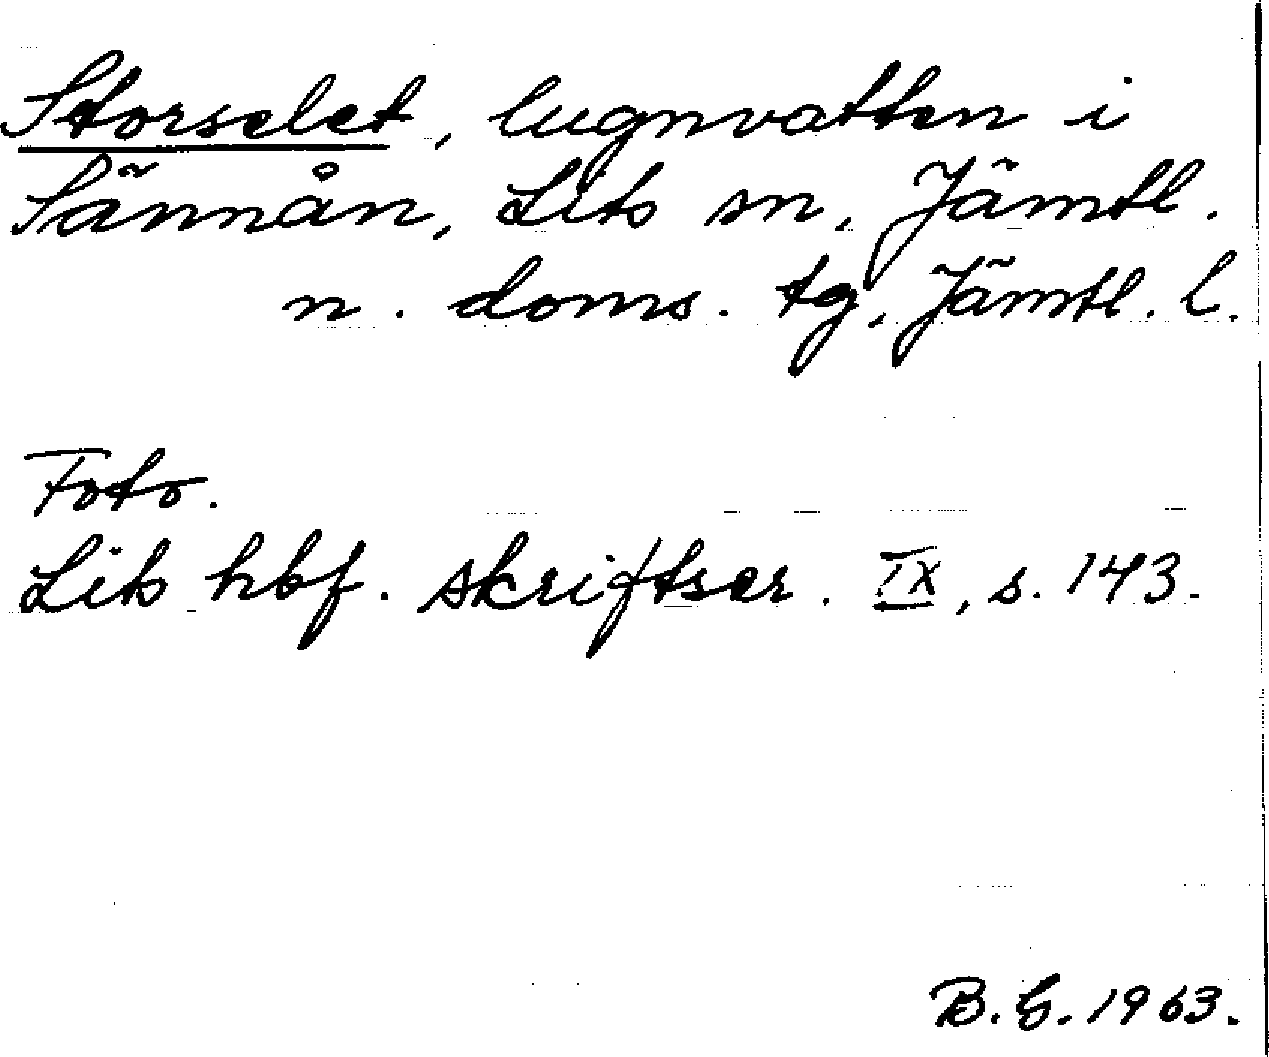 Storselet, lugnvatten i
Sännån, Lits sn, Jämtl.
n. doms. tg, Jämtl. l.
Foto.
Lits hbf. skriftser. IX, s. 143.
B.G. 1963.